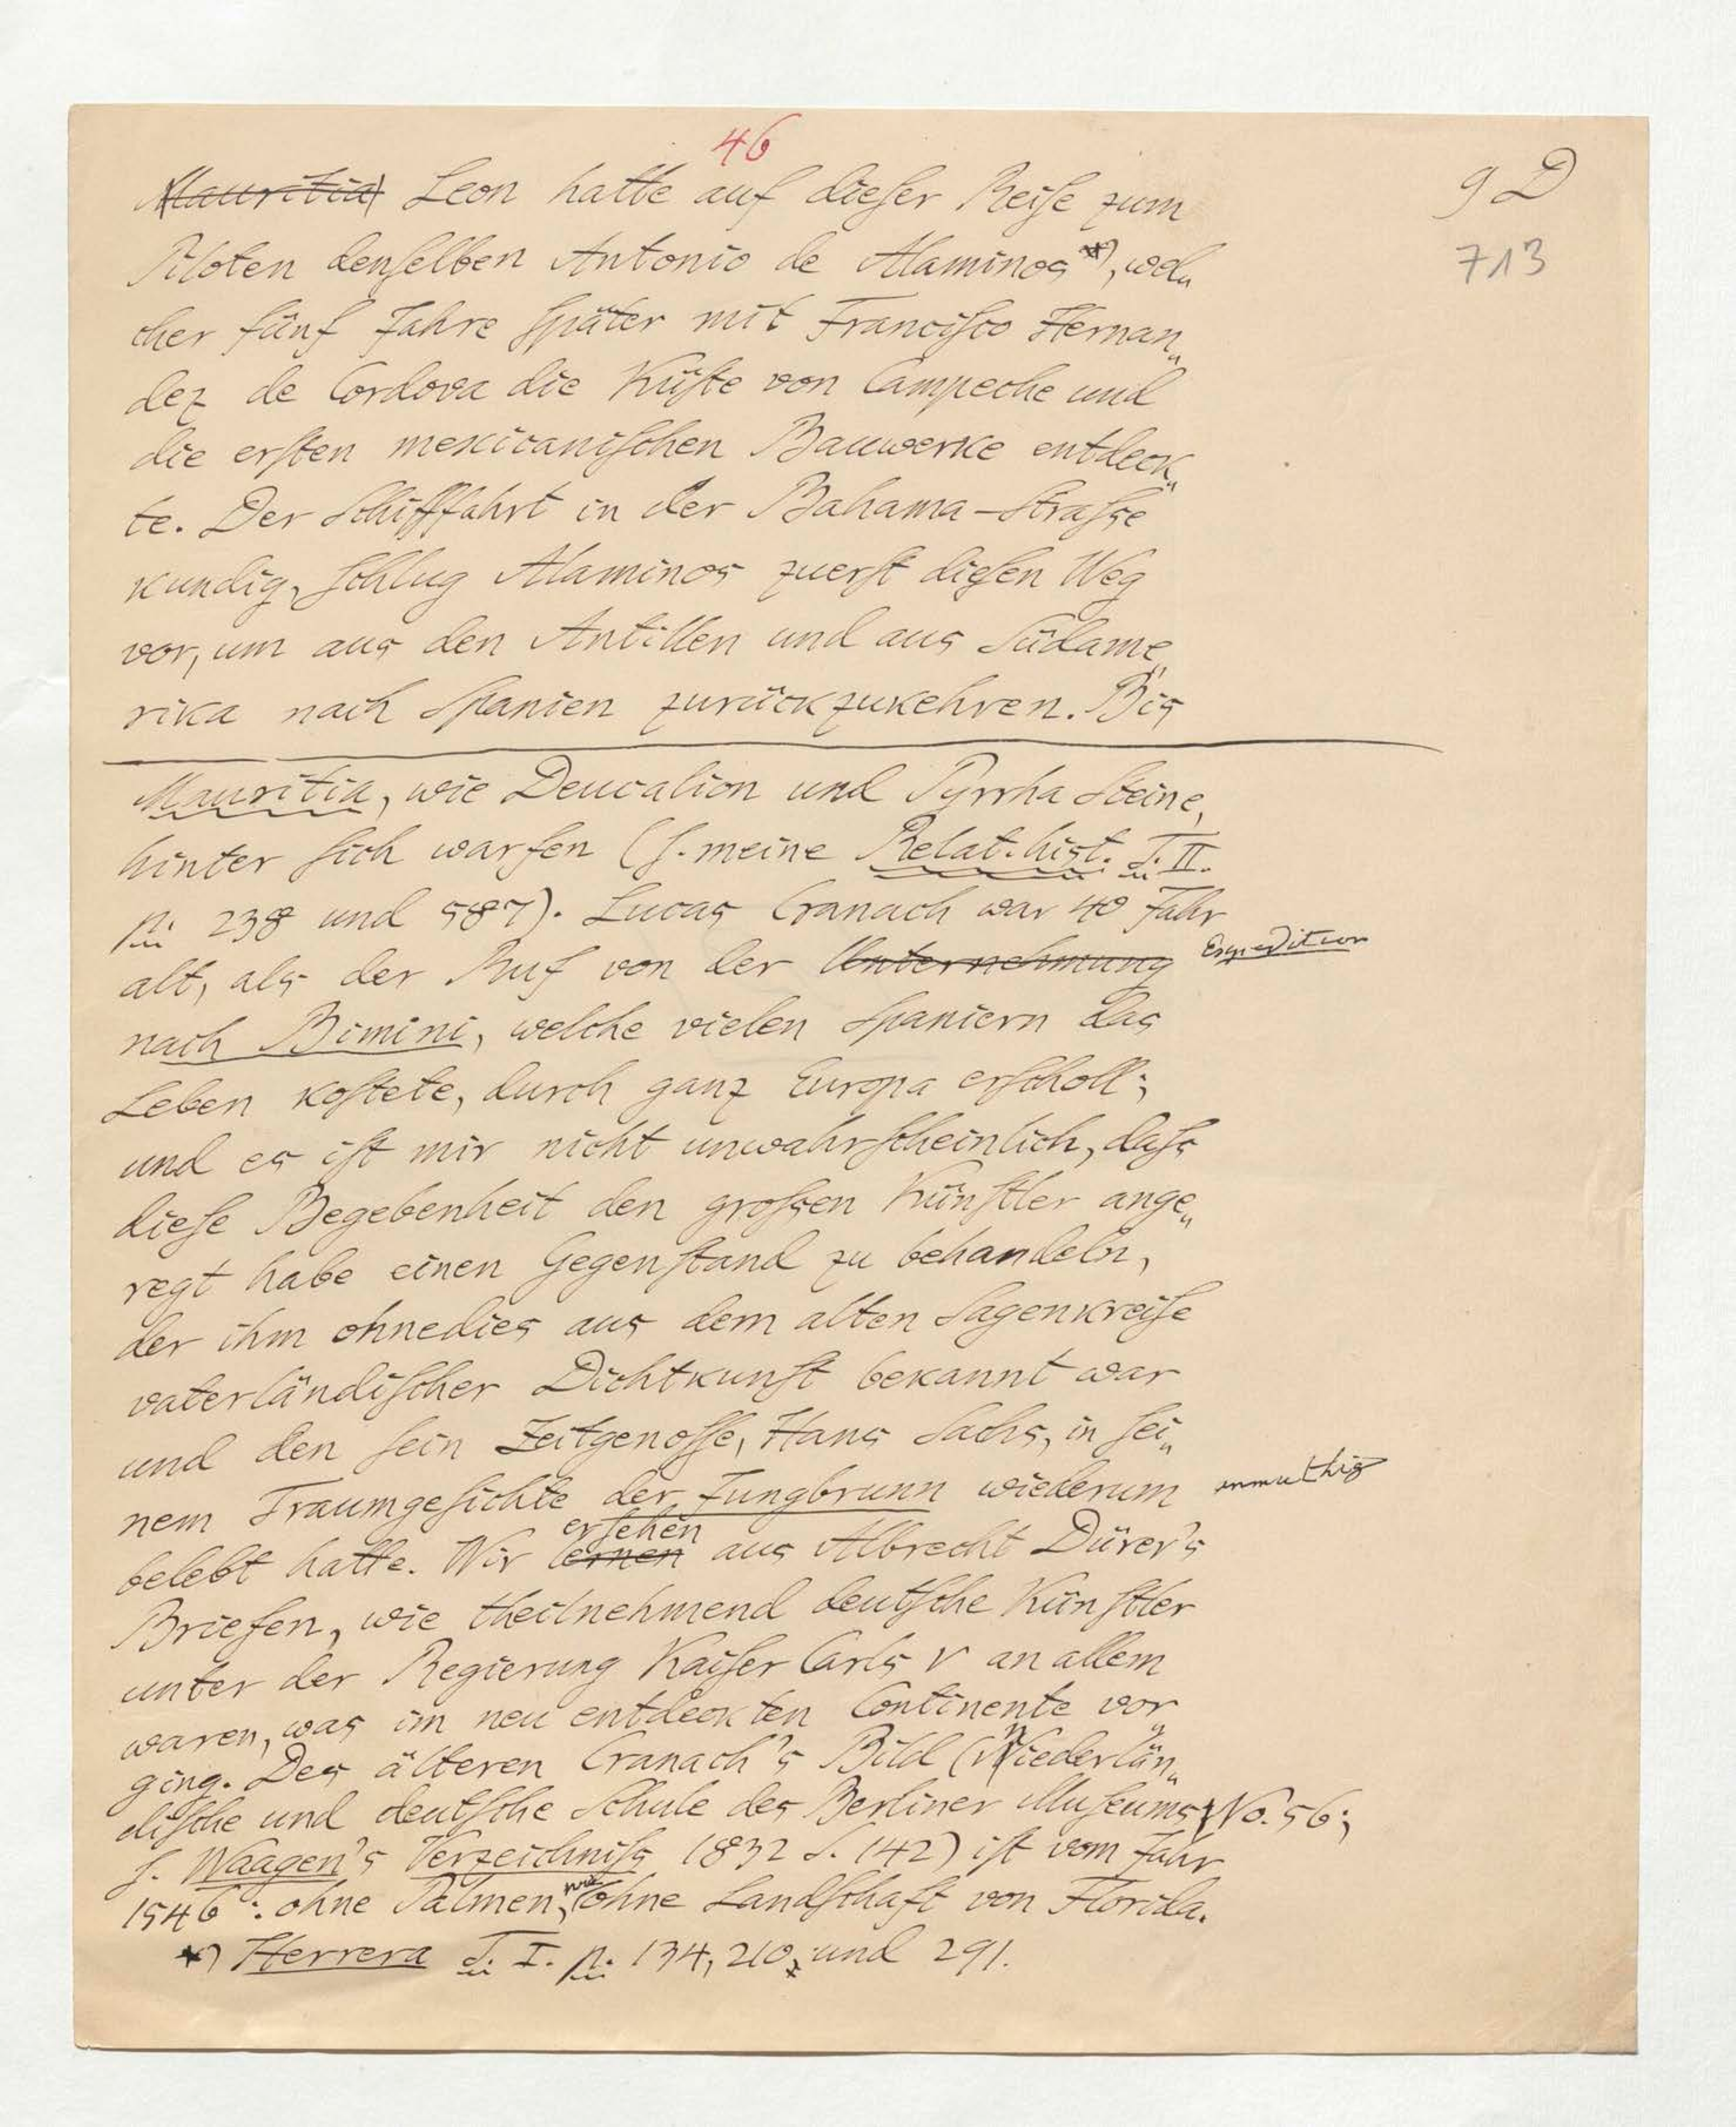 46
9 D
713
Mauritia Leon hatte auf dieſer Reiſe zum
Piloten denſelben Antonio de Alaminos*), wel„
cher fünf Jahre ſpäter mit Franciſco Hernan„
dez de Cordova die Küſte von Campeche und
die erſten mexicaniſchen Bauwerke entdeck„
te. Der Schifffahrt in der Bahama-Straſse
kundig, ſchlug Alaminos zuerſt dieſen Weg
vor, um aus den Antillen und aus Südame„
rika nach Spanien zurückzukehren. Bis
Mauritia, wie Deucalion und Pyrrha Steine,
hinter ſich warfen (ſ. meine Relat. hist. T. II.
p. 238 und 587). Lucas Cranach war 40 Jahr
alt, als der Ruf von der Unternehmung Expedition
nach Bimini, welche vielen Spaniern das
Leben koſtete, durch ganz Europa erſcholl;
und es iſt mir nicht unwahrſcheinlich, daſs
dieſe Begebenheit den groſsen Künſtler ange„
regt habe einen Gegenſtand zu behandeln,
der ihm ohnedies aus dem alten Sagenkreiſe
vaterländiſcher Dichtkunſt bekannt war
und den ſein Zeitgenoſſe, Hans Sachs, in ſei„
nem Traumgeſichte der Jungbrunn wiederum anmuthig
erſehen
belebt hatte. Wir lernen aus Albrecht Dürer's
Briefen, wie theilnehmend deutſche Künſtler
unter der Regierung Kaiſer Carls V an allem
waren, was im neu entdeckten Continente vor„
ging. Des älteren Cranach's Bild (Niederlän„
diſche und deutſche Schule des Berliner Muſeums No. 56;
ſ. Waagen's Verzeichniſs 1832 S. 142) iſt vom Jahr
1546: ohne Palmen, wie ohne Landſchaft von Florida.
*) Herrera T. I. p. 134, 210, und 291.